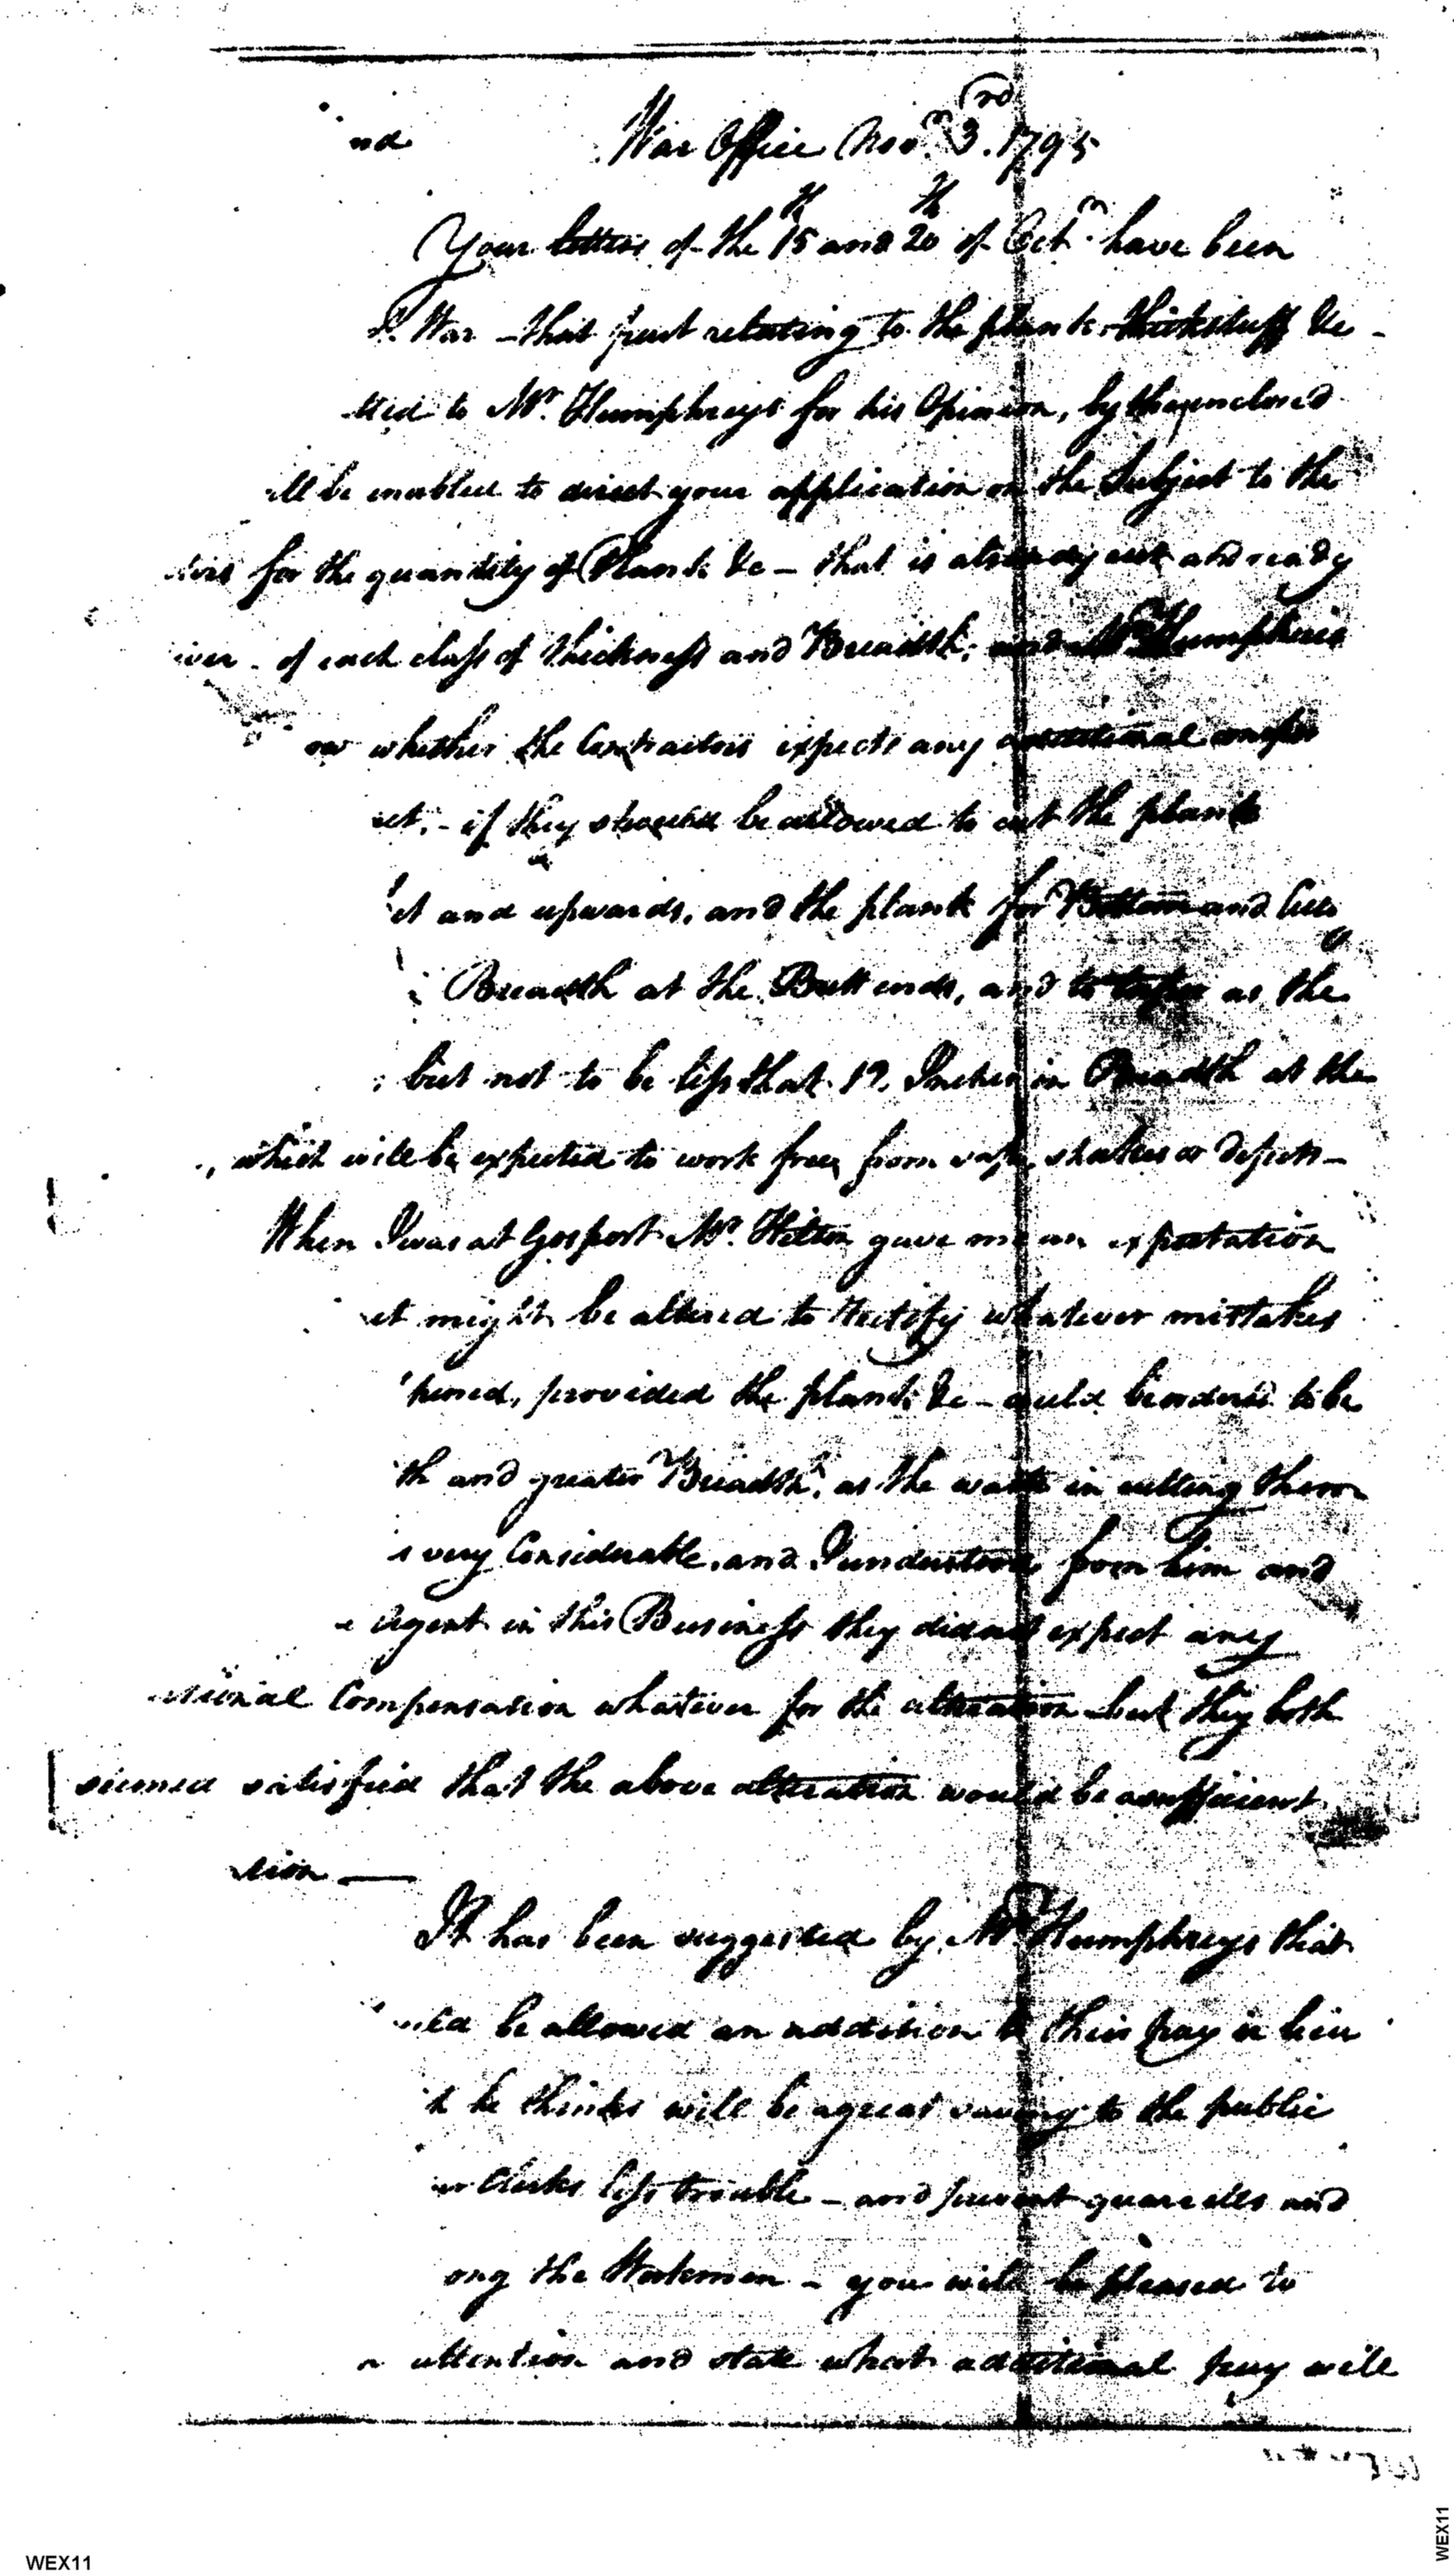 nd War Office Novr. 3rd. 1795
Your letters of the 15th and 20th of Octr. have been
War - that part relating to the plank thickstuff &c -
tted to Mr. Humphreys for his Opinion, by the enclosed
ll be enabled to direct your application on the Subject to the
tors for the quantity of Plank &c - that is already cut and ready
iver - of each class of thickness and Breadth; and Mr. Humphreis
ow whether the Contractors expects any additional
act, - if they should be allowed to cut the plank
et and upwards, and the plank for Bottom and
Breadth at the Butt ends, and to taper as the
but not to be less that 12 Inches in Breadth at the
, which will be expected to work free from shakes or Defects -
When I was at Gosport Mr. Hilton gave me an expectation
ct might be altered to rectify whatever mistakes
pened, provided the plank &c - could be to be
th and greater Breadth, as the waste in cutting them
s very Considerable, and I understood from him and
e Agent in this Business they did not expect any
itional Compensation whatever for the alteration - but they both
seemed satisfied that the above alteration would be a sufficient
tion —
It has been suggested by Mr. Humphreys that
uld be allowed an addition to their pay in lieu
h he thinks will be a great saving to the public
ur Clerks less trouble - and prevent quarrells and
ong the Workmen - you will be pleased to
attention and state what additional pay will
WEX11
WEX11